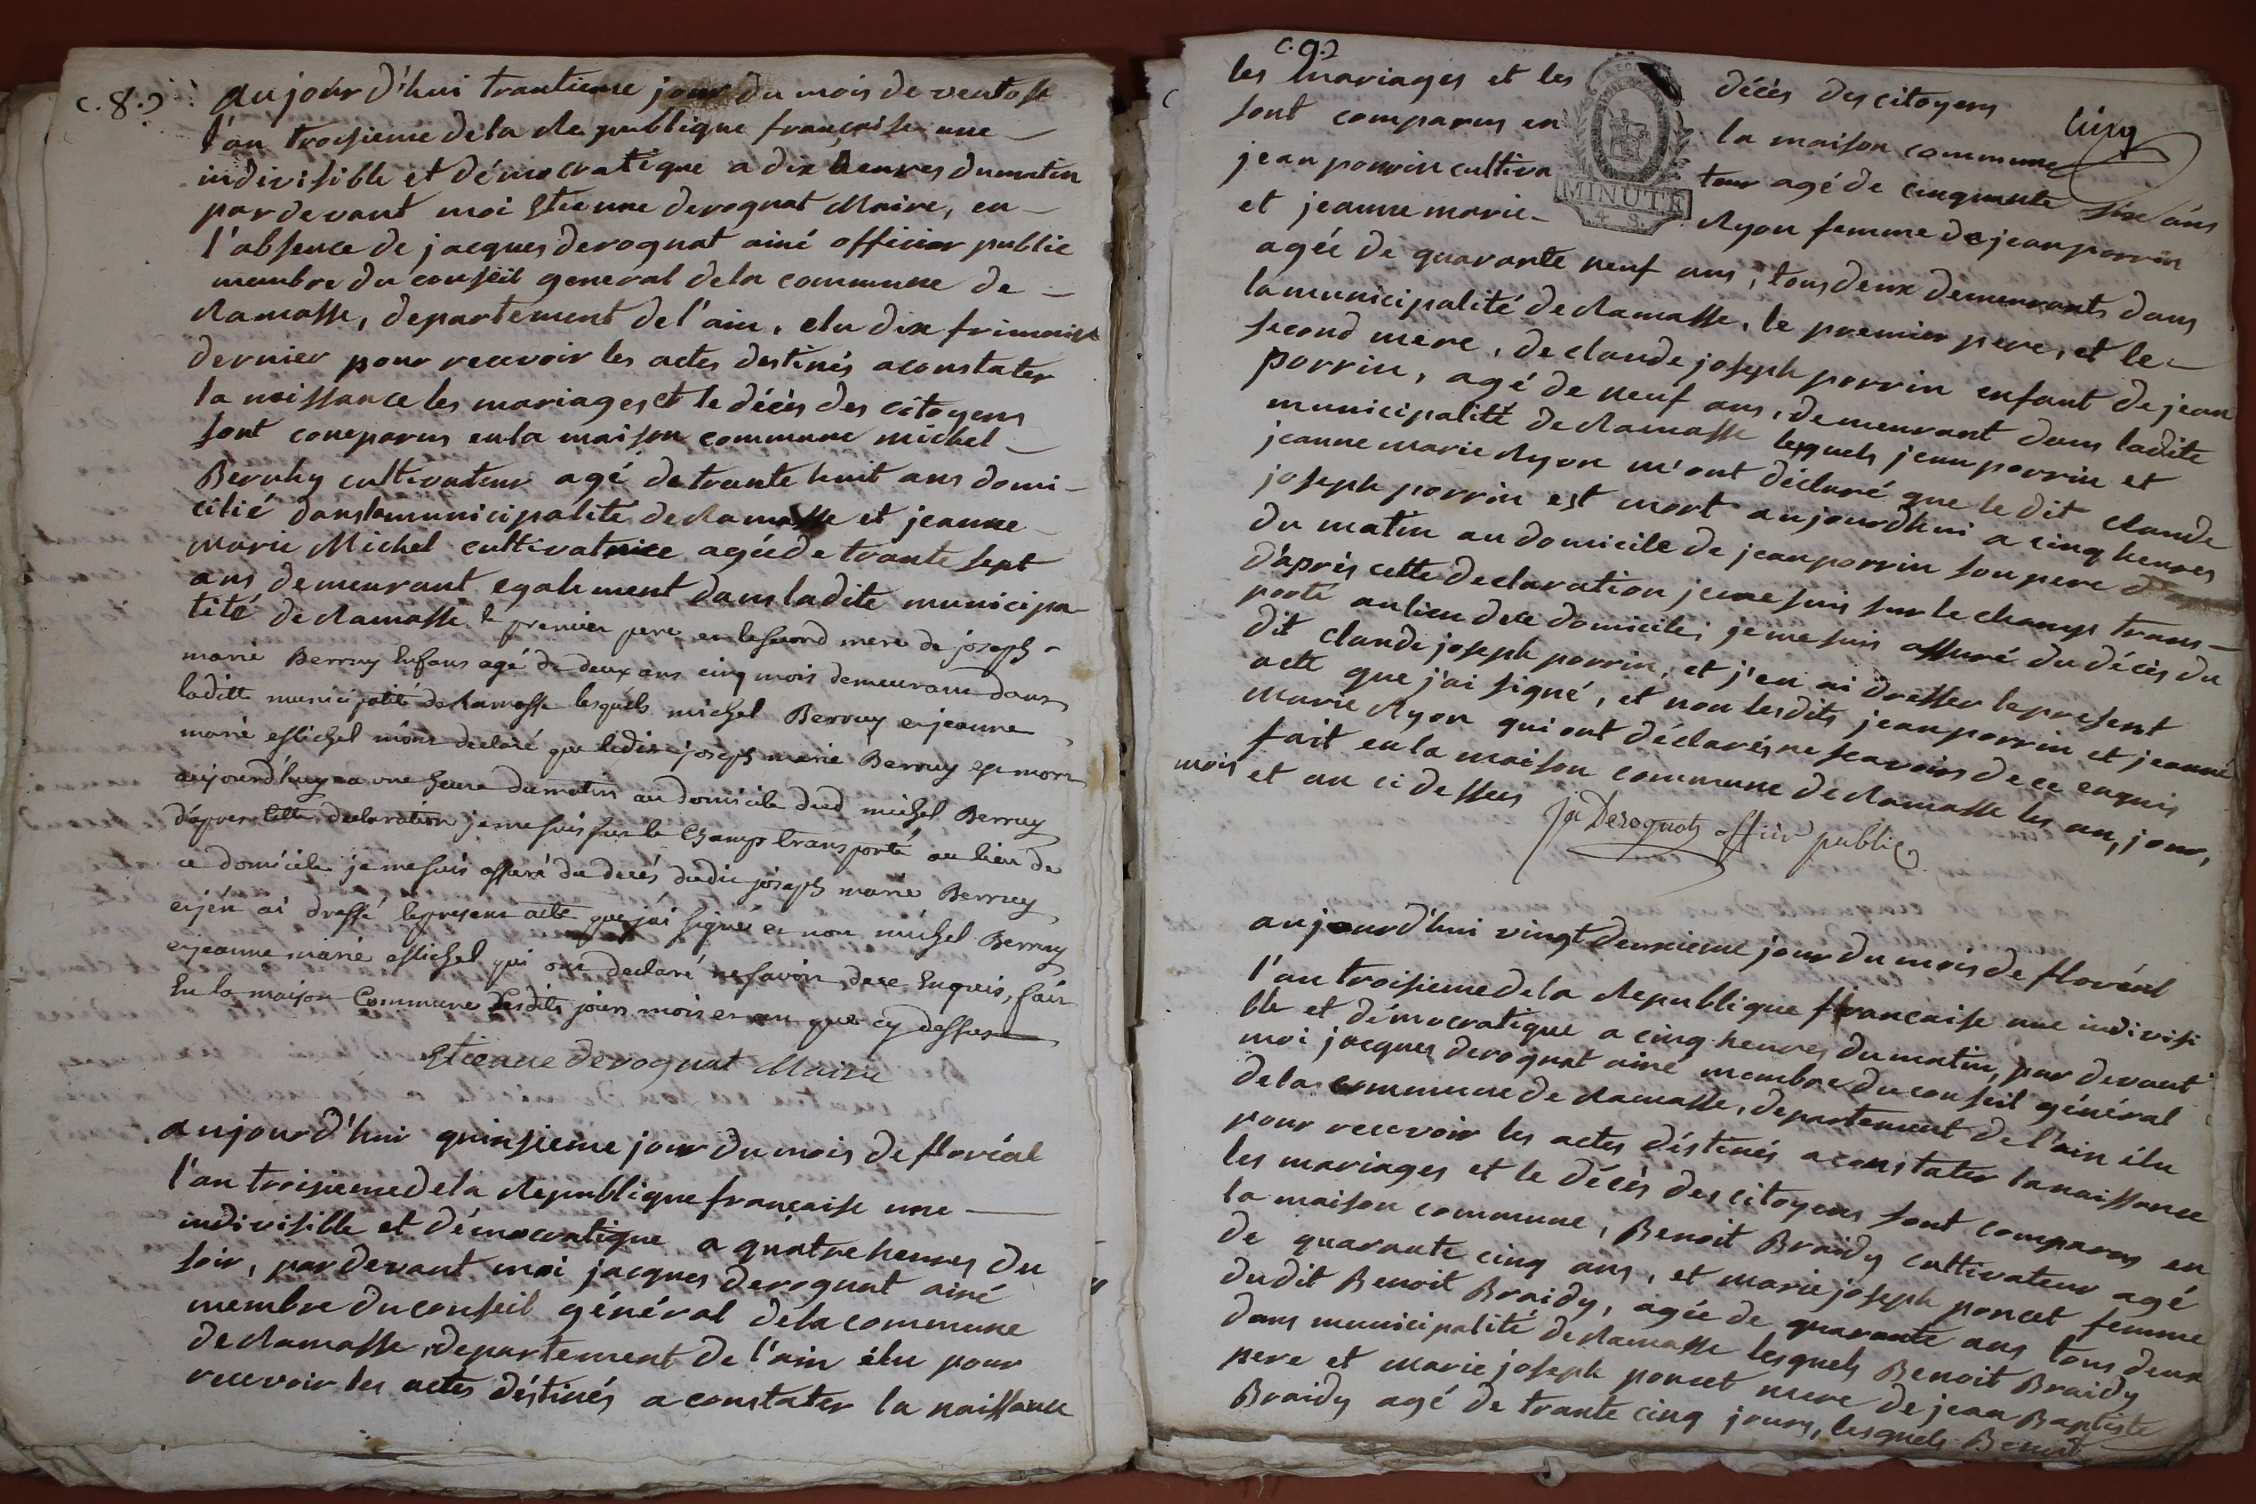 c.8.
aujourd'hui trantieme jour du mois de ventose
l'an troisieme de la Republique francaise une
indivisible et démocratique a dix heures du matin
par devant moi Etienne derognat Maire, en
l'absence de jacques derognat ainé officier public
membre du conseil general de la commune de
Ramasse, departement de l'ain, elu dix frimaire
dernier pour recevoir les actes destinés a constater
la naissance les mariages et le décès des citoyens
sont comparus en la maison commune michel
Berruhy cultivateur agé de trante huit ans domi-
cilié dans la municipalité de Ramasse et jeanne
marie Michel cultivatrice agée de trante sept
ans demeurant egalement dans ladite municipa
lité de Ramasse le premier pere en le second mere de joseph
marie Berruy Enfans agé de deux ans cinq mois demeurant dans
laditte municipalité de Ramasse lesquels michel Berruy et jeanne
marie Michel m'ont declaré que ledit joseph marie Berruy est mort
aujourd'huy a une heure du matin au domicile dud michel Berruy
d'apres cette declaration je me suis sur le champ transporté au lieu de
ce domicile je me suis assuré du decés dudit joseph marie Berruy
et j'en ai dressé le present acte que j'ai signé et non michel Berruy
et jeanne marie Michel qui ont declaré ne savoir de ce Enquis, fait
En la maison Commune lesdits jours mois et an que cy dessus
Etienne derognat Maire
aujourd'hui quinsieme jour du mois de floréal
l'an troisieme de la Republique francaise une
indivisible et démocratique a quatre heures du
soir, par devant moi jacques derognat ainé
membre du conseil général de la commune
de Ramasse, departement de l'ain élu pour
recevoir les actes déstinés a constater la naissance
c.9.
les mariages et les décès des citoyens
sont comparus en la maison commune
jean porrin cultivateur agé de cinquante six ans
et jeanne marie Ryon femme de jean porrin
agée de quarante neuf ans, tous deux demeurants dans
la municipalité de Ramasse, le premier pere, et le
second mere, de claude joseph porrin enfant de jean
porrin, agé de neuf ans, demeurant dans ladite
municipalité de Ramasse lesquels jean porrin et
jeanne marie Ryon m'ont déclaré que le dit claude
joseph porrin est mort aujourd'hui a cinq heures
du matin au domicile de jean porrin son pere
d'après cette declaration je me suis sur le champs trans-
porté au lieu de ce domicile, je me suis assuré du décès du
dit claude joseph porrin, et j'en ai dresser le present
acte que j'ai signé, et non lesdits jean porrin et jeanne
marie Ryon qui ont déclarés ne scavoirs de ce enquis
fait en la maison commune de Ramasse les an, jour,
mois et an ci dessus
Ja Derognat officier public
aujourd'hui vingt deuxieme jour du mois de floréal
l'an troisieme de la Republique francaise une indivisi
ble et démocratique a cinq heures du matin, par devant
moi jacques derognat ainé membre du conseil général
de la commune de Ramasse, departement de l'ain élu
pour recevoir les actes déstinés a constater la naissance
les mariages et le décès des citoyens sont comparus en
la maison commune, Benoit Braidy cultivateur agé
de quarante cinq ans, et marie joseph poncet femme
dudit Benoit Braidy, agée de quarante ans tous deux
dans municipalité de Ramasse lesquels Benoit Braidy
pere et marie joseph poncet mere de jean Baptiste
Braidy agé de trante cinq jours, lesquels Benoit
MINUTE
4 S.